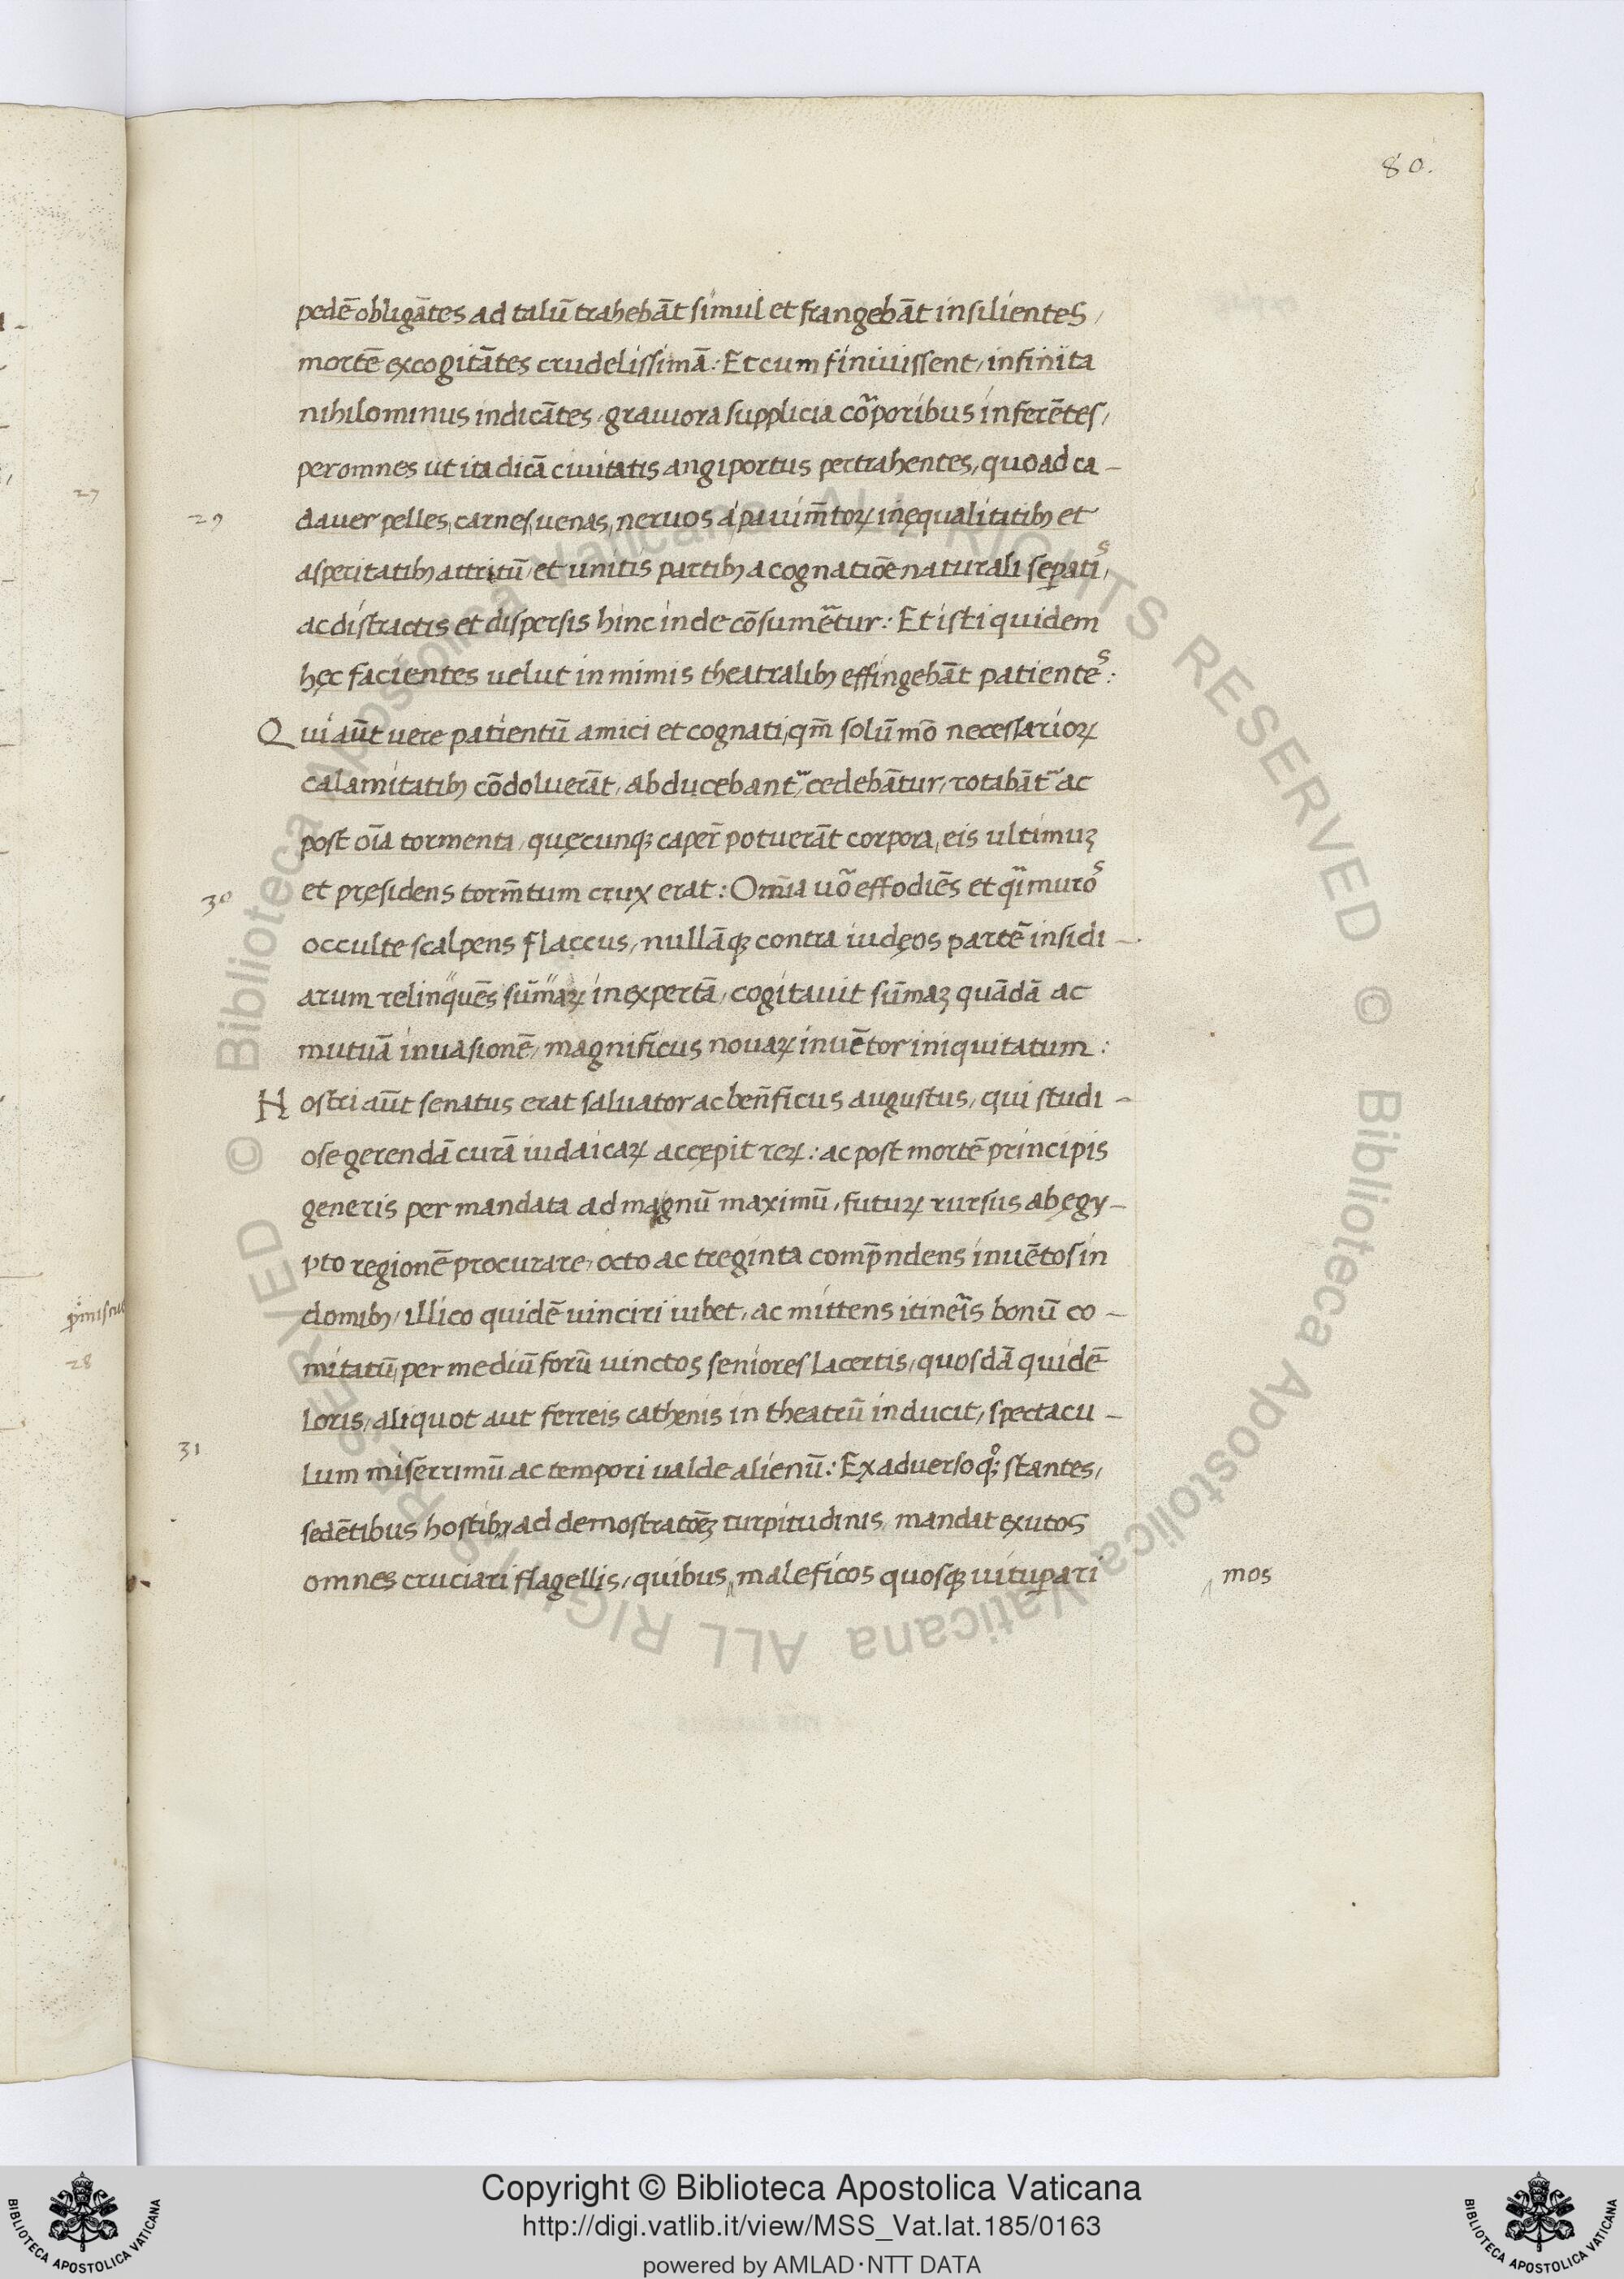 80.
pedē obligātes ad talū trahebāt simul et frangebāt insilientes,
mortē excogitātes crudelissimā: Et cum finiuissent, infinita
nihilominus indicātes, grauiora supplicia cõꝛporibus inferētes,
per omnes ut ita dicā ciuitatis angiportus pertrahentes, quoad ca-
29 dauer pelles, carnes, uenas, neruos a pauim̄toꝝ inęqualitatibꝫ et
asperitatibꝫ attritū, et unitis partibꝫ a cognatiōe naturali seꝑatis,
ac distractis et dispersis hinc inde cōsumētur: Et isti quidem
hęc facientes uelut in mimis theatralibꝫ effingebāt patientes:
Qui aūt uere patientū amici et cognati, qm̄ solū mō necessarioꝝ
calamitatibꝫ cōdoluerāt, abducebant᷑, cedebātur, rotabāt᷑ ac
post oīa tormenta, quęcunqꝫ caper̄ potuerāt corpora, eis ultimuꝫ
30 et pręsidens torm̄tum crux erat: Omīa uõ effodiēs et qͥ muros
occulte scalpens flaccus, nullāqꝫ contra iudęos partē insidi-
arum relinquēs sum̄aꝝ inexpertā, cogitauit sum̄aꝫ quādā ac
mutuā inuasionē, magnificus nouaꝝ inuētor iniquitatum:
Nostri aūt senatus erat saluator ac ben̄ficus augustus, qui studi-
ose gerendā curā iudaicaꝝ accępit reꝝ: ac post mortē principis
generis per mandata ad magnū maximū, futuꝝ rursus ab ęgy-
pto regionē procurare, octo ac treginta comp̄ndens inuētos in
domibꝫ, illico quidē uinciri iubet, ac mittens itineris bonū co-
mitatū, per mediū forū uinctos seniores lacertis, quosdā quidē
loris, aliquot aut ferreis cathenis in theatrū inducit, spectacu-
31 lum miserrimū ac tempori ualde alienū: Ex aduerso qͦꝫ stantes,
sedētibus hostibꝫ ad demostratōeꝫ turpitudinis, mandat exutos
omnes cruciari flagellis, quibus maleficos quosqꝫ uituꝑari
mos
27
28
Copyright © Biblioteca Apostolica Vaticana
http://digi.vatlib.it/view/MSS_Vat.lat.185/0163
powered by AMLAD·NTT DATA
BIBLIOTECA APOSTOLICA VATICANA
BIBLIOTECA APOSTOLICA VATICANA
© Biblioteca Apostolica Vaticana ALL RIGHTS RESERVED © Biblioteca Apostolica Vaticana ALL RIGHTS RESERVED